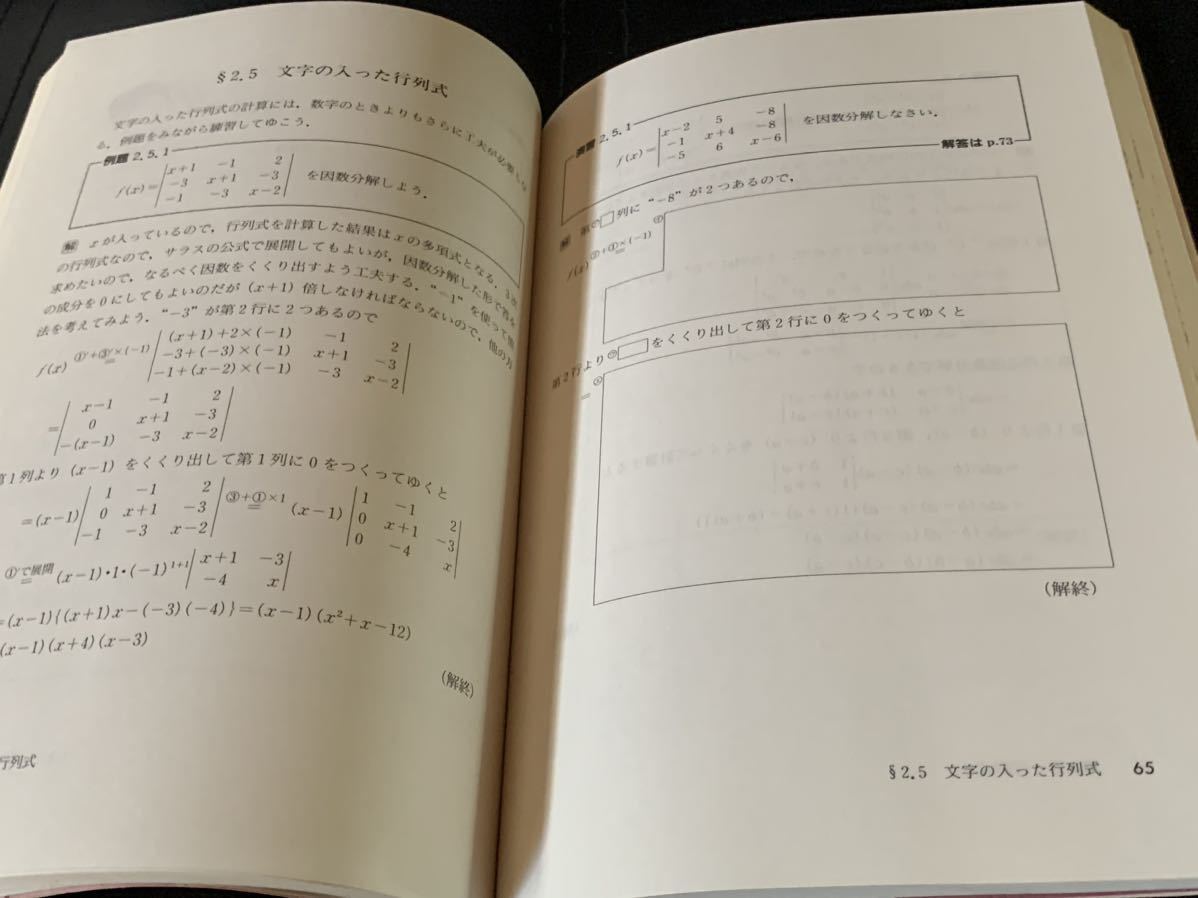 §2.5 文字の入った行列式
文字の入った行列式の計算には，数字のときよりもさらに工夫が必要とな
る．例題をみながら練習してゆこう．
例題 2.5.1
f(x)=
x+1 -1 2
-3 x+1 -3
-1 -3 x-2
を因数分解しよう．
解 xが入っているので，行列式を計算した結果はxの多項式となる．3次
の行列式なので，サラスの公式で展開してもよいが，因数分解した形で答を
求めたいので，なるべく因数をくくり出すよう工夫する．“-1”を使って他
の成分を0にしてもよいのだが (x+1) 倍しなければならないので，他の方
法を考えてみよう．“-3”が第2行に2つあるので
f(x) ①'+③'×(-1) =
(x+1)+2×(-1) -1 2
-3+(-3)×(-1) x+1 -3
-1+(x-2)×(-1) -3 x-2
=
x-1 -1 2
0 x+1 -3
-(x-1) -3 x-2
第1列より (x-1) をくくり出して第1列に0をつくってゆくと
=(x-1)
1 -1 2
0 x+1 -3
-1 -3 x-2
③+①×1 = (x-1)
1 -1 2
0 x+1 -3
0 -4 x
①'で展開 = (x-1)・1・(-1)¹⁺¹
x+1 -3
-4 x
=(x-1){(x+1)x-(-3)(-4)}=(x-1)(x²+x-12)
(x-1)(x+4)(x-3)
(解終)
行列式
2.5.1
f(x)=
x-2 5 -8
-1 x+4 -8
-5 6 x-6
を因数分解しなさい．
解答は p.73
解 第□列に “-8” が2つあるので，
f(x) ②+①×(-1) =
第2行より □ をくくり出して第2行に0をつくってゆくと
=
(解終)
§2.5 文字の入った行列式 65